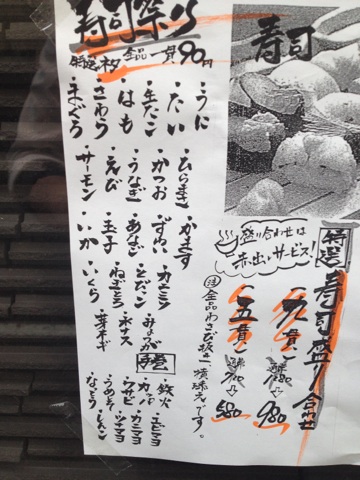 寿司祭り
特選ネタ 全品一貫90円
・うに
・たい
・生たこ
・はも
・さわら
・まぐろ
・ひらまさ
・かつお
・うなぎ
・えび
・サーモン
・かます
・ずわい
・あなご
・玉子
・いか
・カニミソ
・とびこ
・ねぎとろ
・いくら
・みょうが
・水ナス
・芽ネギ
手巻
・鉄火
・カッパ
・うめしそ
・なっとう
・エビマヨ
・カニマヨ
・ツナマヨ
寿司
盛り合わせは
赤出しサービス!
特選 寿司盛り合わせ
九貫
980
五貫
580
注 全品わさび抜き、